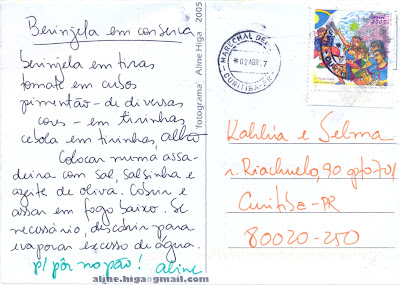 Beringela em conserva
beringela em tiras
tomate em cubos
pimentão - de diversas
cores - em tirinhas,
cebola em tirinhas, alho
Colocar numa assa-
deira com sal, salsinha e
azeite de oliva. Cobrir e
assar em fogo baixo. Se
necessário, descobrir para
evaporar excesso de água.
p/ pôr no pão! Aline
aline.higa@gmail.com
'fotograma' Aline Higa 2005
MARECHAL DEO
*02 ABR. 7
CURITIBA-PR
Brasil
Kahlúa e Selma
r. Riachuelo, 90 apto 701
Curitiba-PR
80020-250